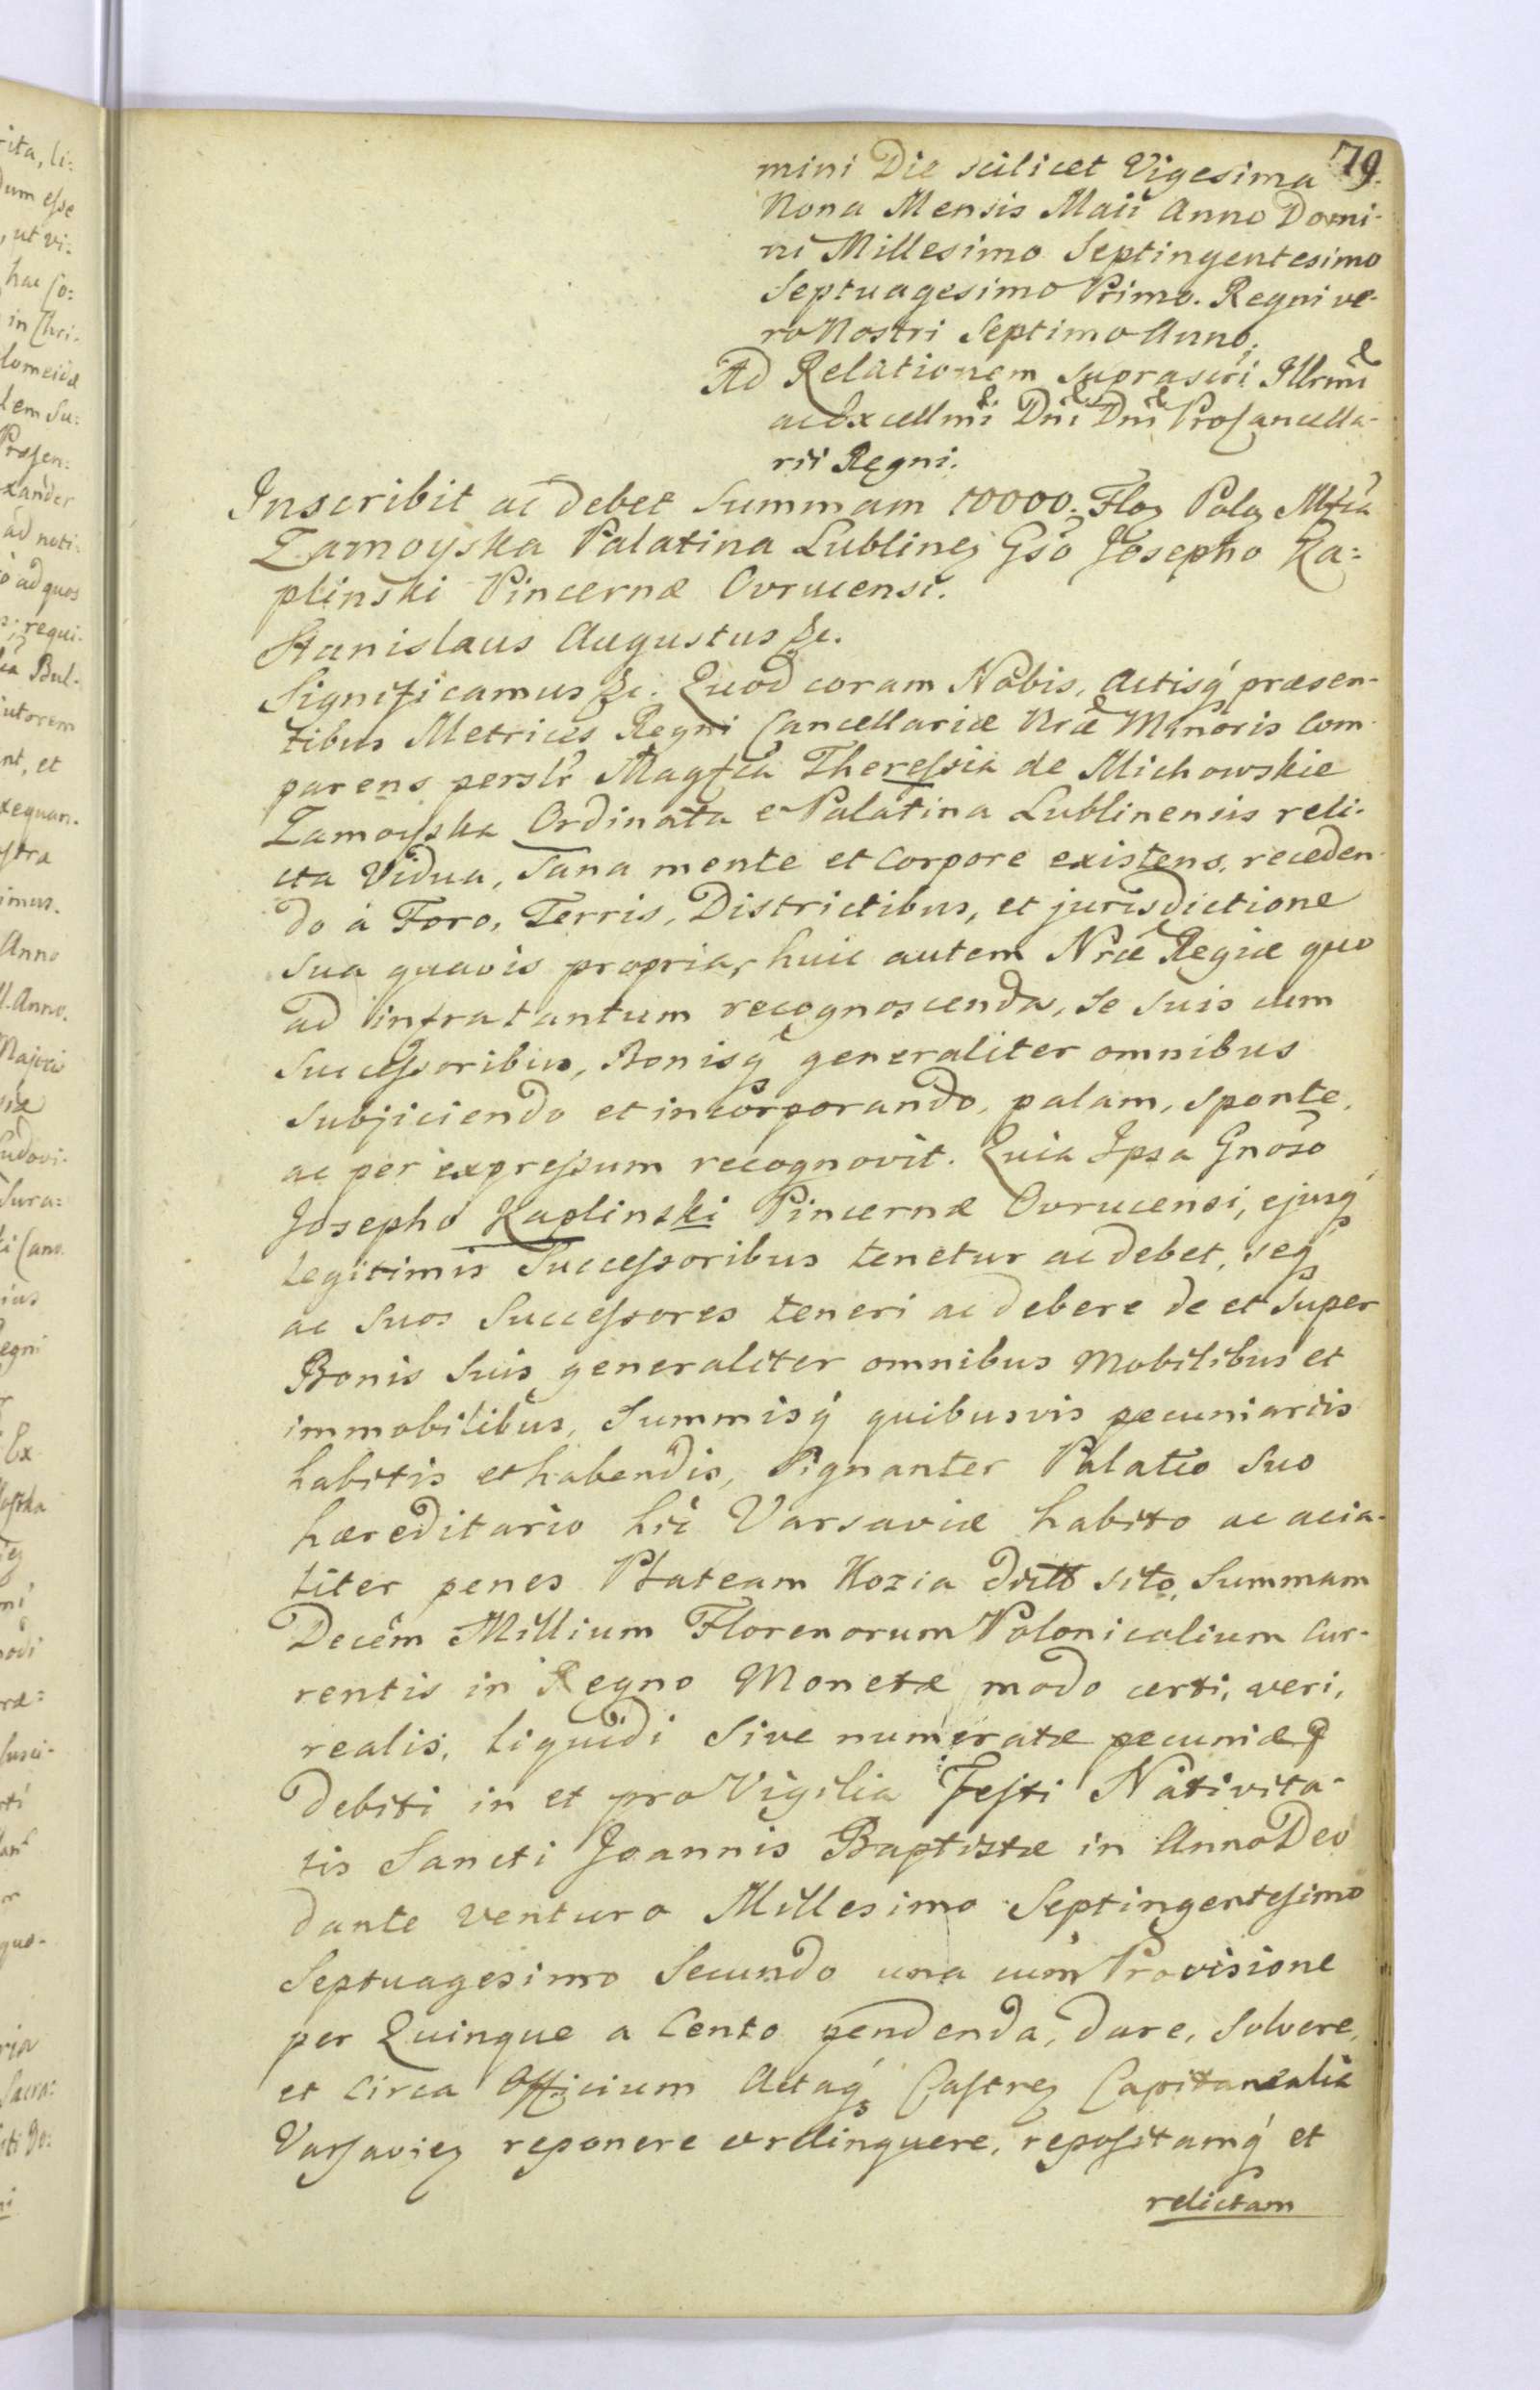 79.
mini Die scilicet Vigesima
Nona Mensis Maii Anno Domi-
ni Millesimo Septingentesimo
Septuagesimo Primo. Regni ve-
ro Nostri Septimo Anno.
Ad Relationem suprascri Illrmi
ac Excellmi Dni Dni ProCancella-
rii Regni.
Inscribit ac debet Summam 10000. Flor Polo Mfca
Zamoyska Palatina Lublinen Gso Josepho Ka=
plinski Pincernæ Ovrucensi.
Stanislaus Augustus &c.
Significamus &c. Quod coram Nobis, Actisq́ præsen-
tibus Metrices Regni Cancellariæ Nræ Minoris Com-
parens perslr Magfca Theressia de Michowskie
Zamoyska Ordinata e Palatina Lublinensis reli-
cta Vidua, Sana mente et Corpore existens, receden-
do à Foro, Terris, Districtibus, et jurisdictione
sua quavis propria, huic autem Nræ Regiæ quo
ad infratantum recognoscenda, se suis cum
Successoribus, Bonisq́ generaliter omnibus
subjiciendo et incorporando, palam, sponte,
ac per expressum recognovit. Quia Ipsa Gnoso
Josepho Kaplinski Pincernæ Ovrucensi, ejusq́
legitimis Successoribus tenetur ac debet, seq́
ac suos Successores teneri ac debere de et super
Bonis suis generaliter omnibus Mobilibus et
immobilibus, Summisq́ quibusvis pecuniariis
habitis et habendis, Signanter Palatio suo
hæreditario hic Varsaviæ habito ac acia-
liter penes Plateam Kozia dictt sito, Summam
Decem Millium Florenorum Polonicalium Cur-
rentis in Regno Monetæ modo certi, veri,
realis, liquidi sive numeratæ pecuniæ
Debiti in et pro Vigilia Festi Nativita-
tis Sancti Joannis Baptistæ in Anno Deo
dante venturo Millesimo Septingentesimo
Septuagesimo Secundo una cum Provisione
per Quinque a Cento pendenda, dare, Solvere,
et circa Officium Actaq́ Castren Capitanealia
Varsavien reponere e relinquere, repositamq́ et
relictam